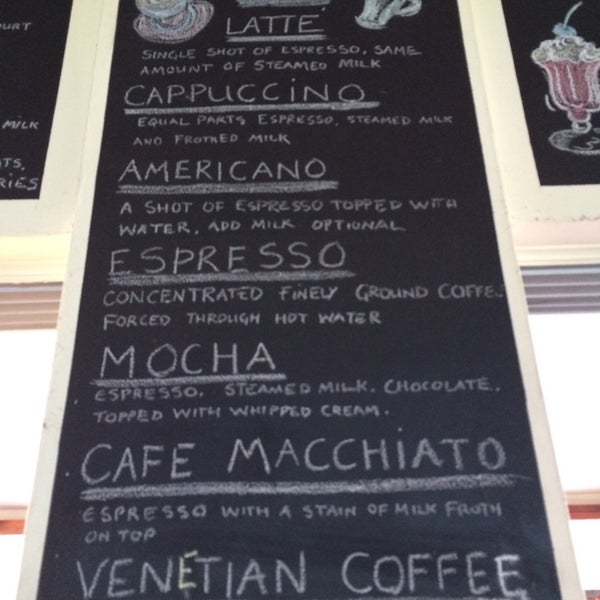 OURT
MILK
TS,
RIES
LATTÉ
SINGLE SHOT OF ESPRESSO, SAME
AMOUNT OF STEAMED MILK
CAPPUCCINO
EQUAL PARTS ESPRESSO, STEAMED MILK
AND FROTHED MILK
AMERICANO
A SHOT OF ESPRESSO TOPPED WITH
WATER, ADD MILK OPTIONAL
ESPRESSO
CONCENTRATED FINELY GROUND COFFE
FORCED THROUGH HOT WATER
MOCHA
ESPRESSO, STEAMED MILK, CHOCOLATE,
TOPPED WITH WHIPPED CREAM.
CAFE MACCHIATO
ESPRESSO WITH A STAIN OF MILK FROTH
ON TOP
VENÉTIAN COFFEE